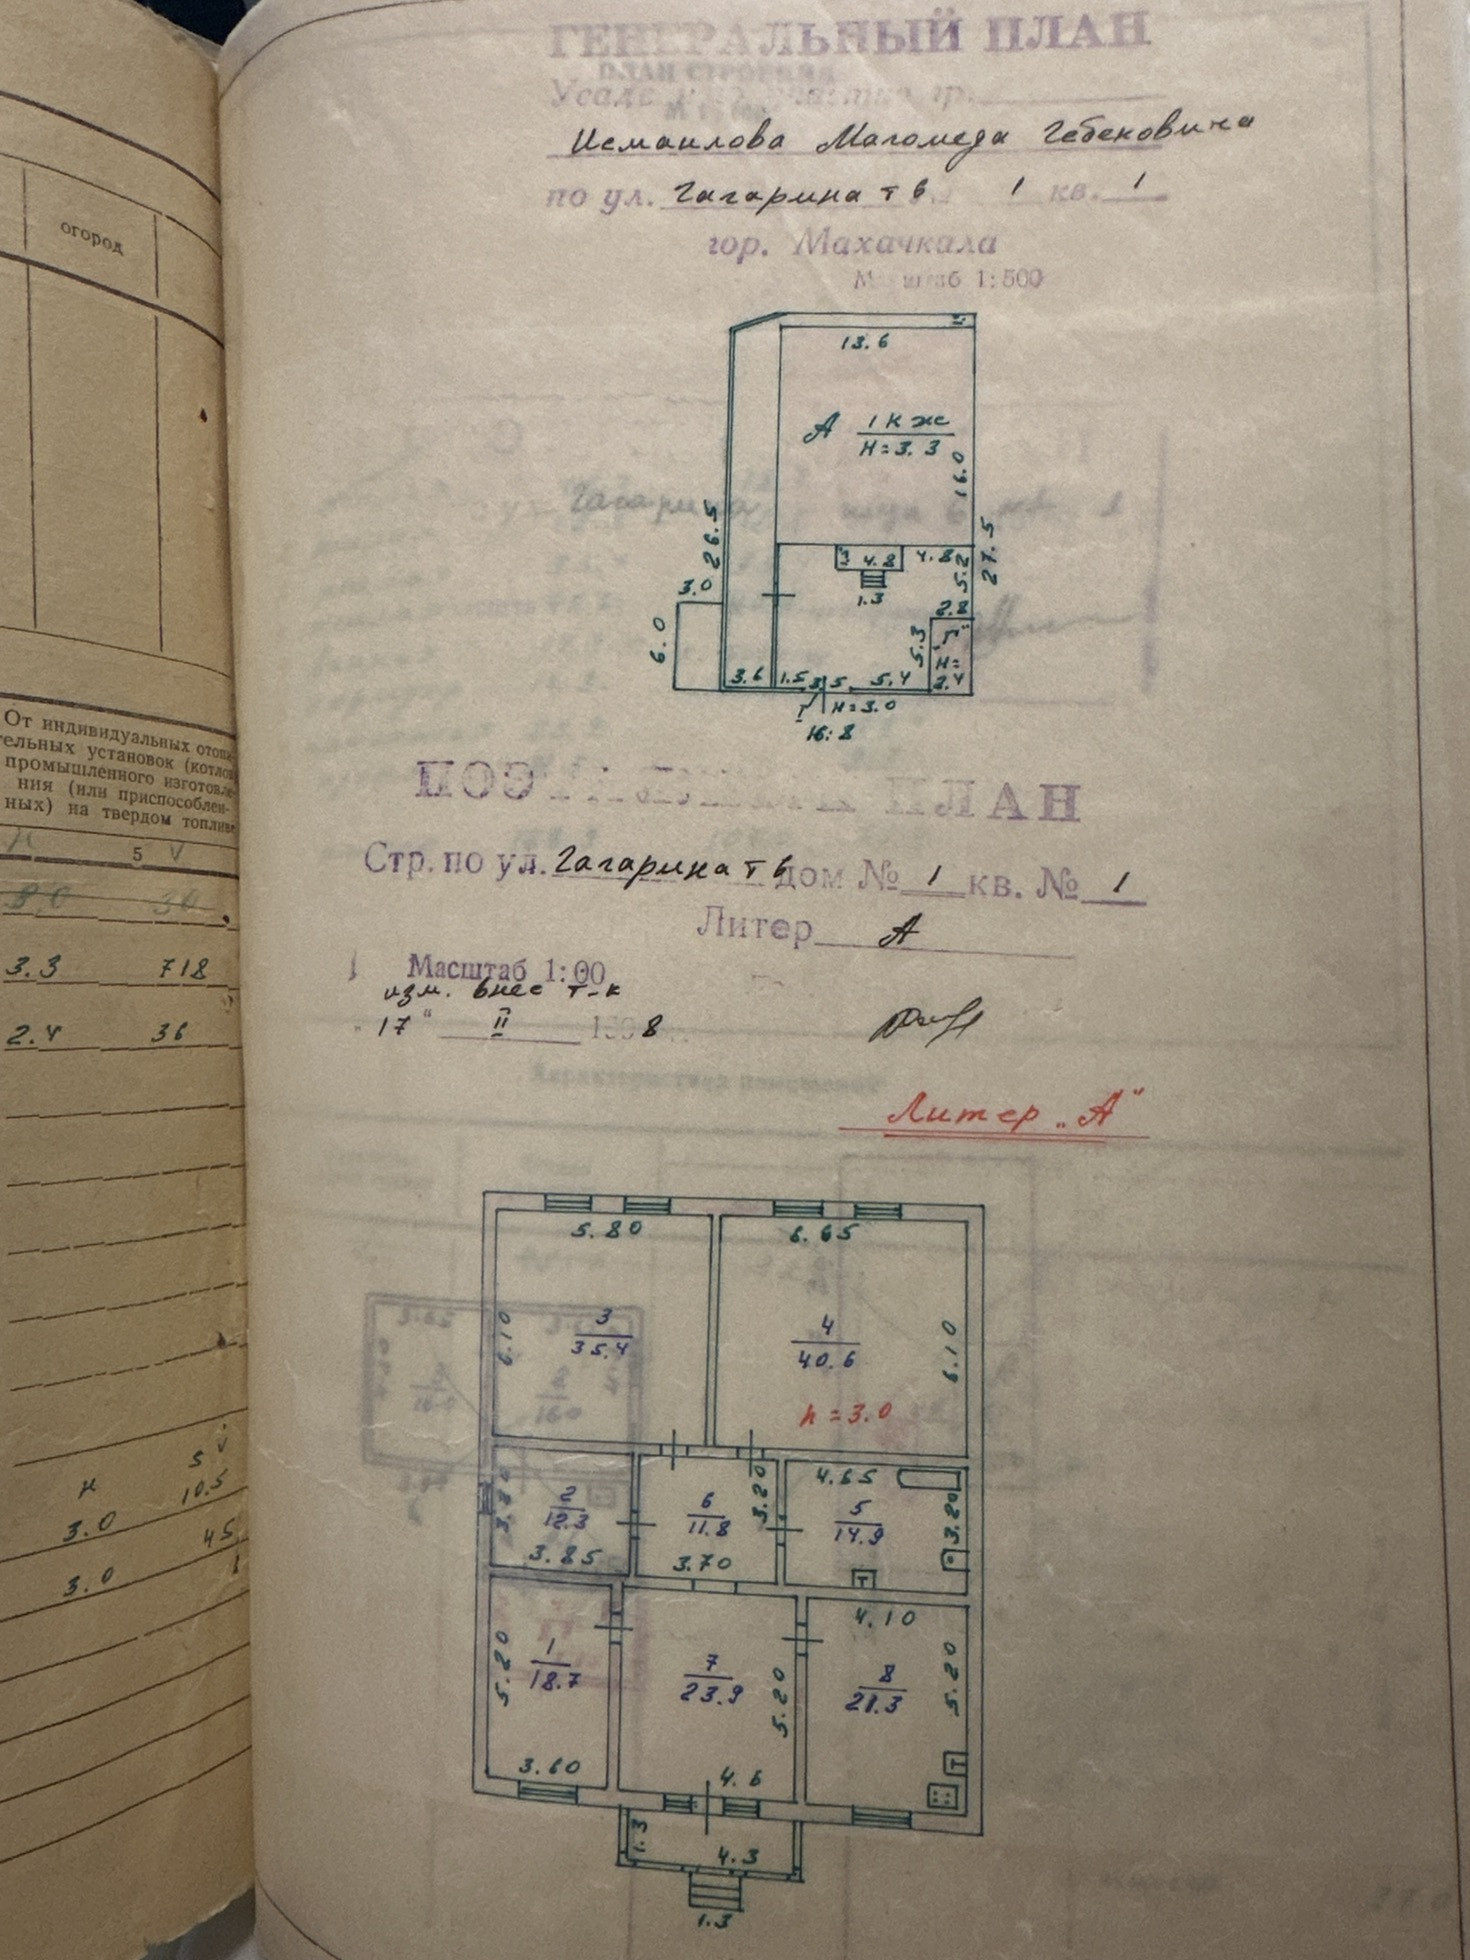 огород
От индивидуальных отопи-
тельных установок (котлов
промышленного изготовле-
ния (или приспособлен-
ных) на твердом топливе
5
3.3 718
2.4 36
к
10.5
3.0 45
3.0
ГЕНЕРАЛЬНЫЙ ПЛАН
ПЛАН СТРОЕНИЯ
гр.
Исмаилова Магомеда Гебековича
по ул. Гагарина т 6 1 кв. 1
гор. Махачкала
Масштаб 1:500
13.6
А 1К ж
Н=3.3
16.0
26.5
27.5
3 4.8 4.8
5.2
1.3
3.0
2.8
6.0
5.3
Н=
2.4
3.6 1.5 3.5 5.4
I Н=3.0
16:8
ПОЭТАЖНЫЙ ПЛАН
Стр. по ул. Гагарина т 6 дом № 1 кв. № 1
Литер А
Масштаб 1:00
изм. внес т-к
17 " II 1998
Литер „А"
5.80 6.65
6.10
3
35.4
4
40.6
6.10
h = 3.0
4.65
3.20
2
12.3
3.85
6
11.8
3.20
3.70
5
14.9
3.20
Т
4.10
5.20
1
18.7
7
23.9
5.20
8
21.3
5.20
Т
3.60 4.6
1.3
4.3
1.3